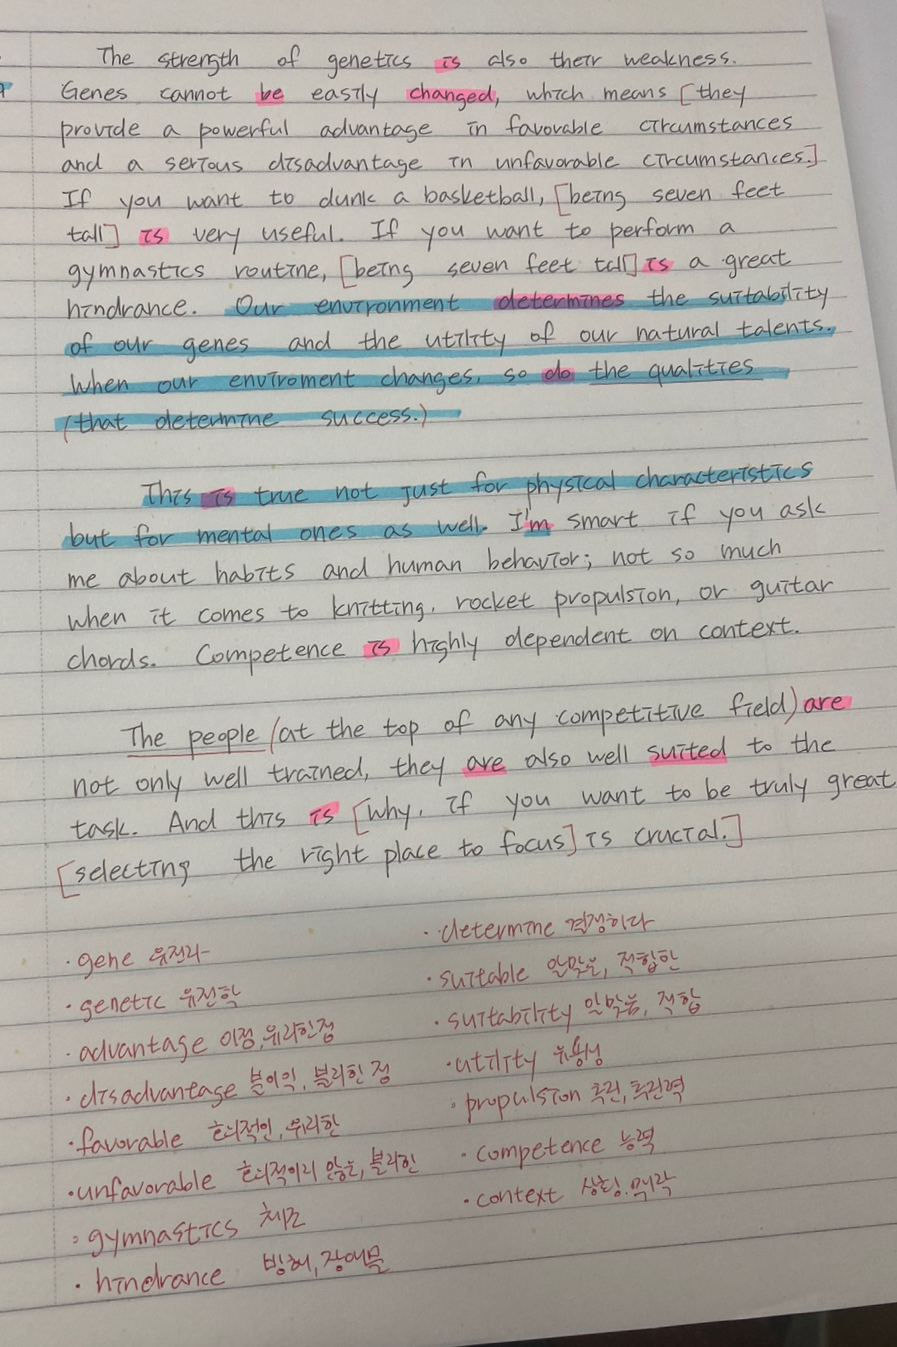 The strength of genetics is also their weakness.
Genes cannot be easily changed, which means [they
provide a powerful advantage in favorable circumstances
and a serious disadvantage in unfavorable circumstances.]
If you want to dunk a basketball, [being seven feet
tall] is very useful. If you want to perform a
gymnastics routine, [being seven feet tall] is a great
hindrance. Our environment determines the suitability
of our genes and the utility of our natural talents.
When our enviroment changes, so do the qualities
(that determine success.)
This is true not just for physical characteristics
but for mental ones as well. I'm smart if you ask
me about habits and human behavior; not so much
when it comes to knitting, rocket propulsion, or guitar
chords. Competence is highly dependent on context.
The people (at the top of any competitive field) are
not only well trained, they are also well suited to the
task. And this is [why, if you want to be truly great
[selecting the right place to focus] is crucial.]
· gene 유전자
· genetic 유전학
· advantage 이점, 유리한점
· disadvantage 불이익, 불리한 점
· favorable 호의적인, 유리한
· unfavorable 호의적이지 않은, 불리한
· gymnastics 체조
· hindrance 방해, 장애물
· determine 결정하다
· suitable 알맞은, 적합한
· suitability 알맞음, 적합
· utility 유용성
· propulsion 추진, 추진력
· competence 능력
· context 상황, 맥락